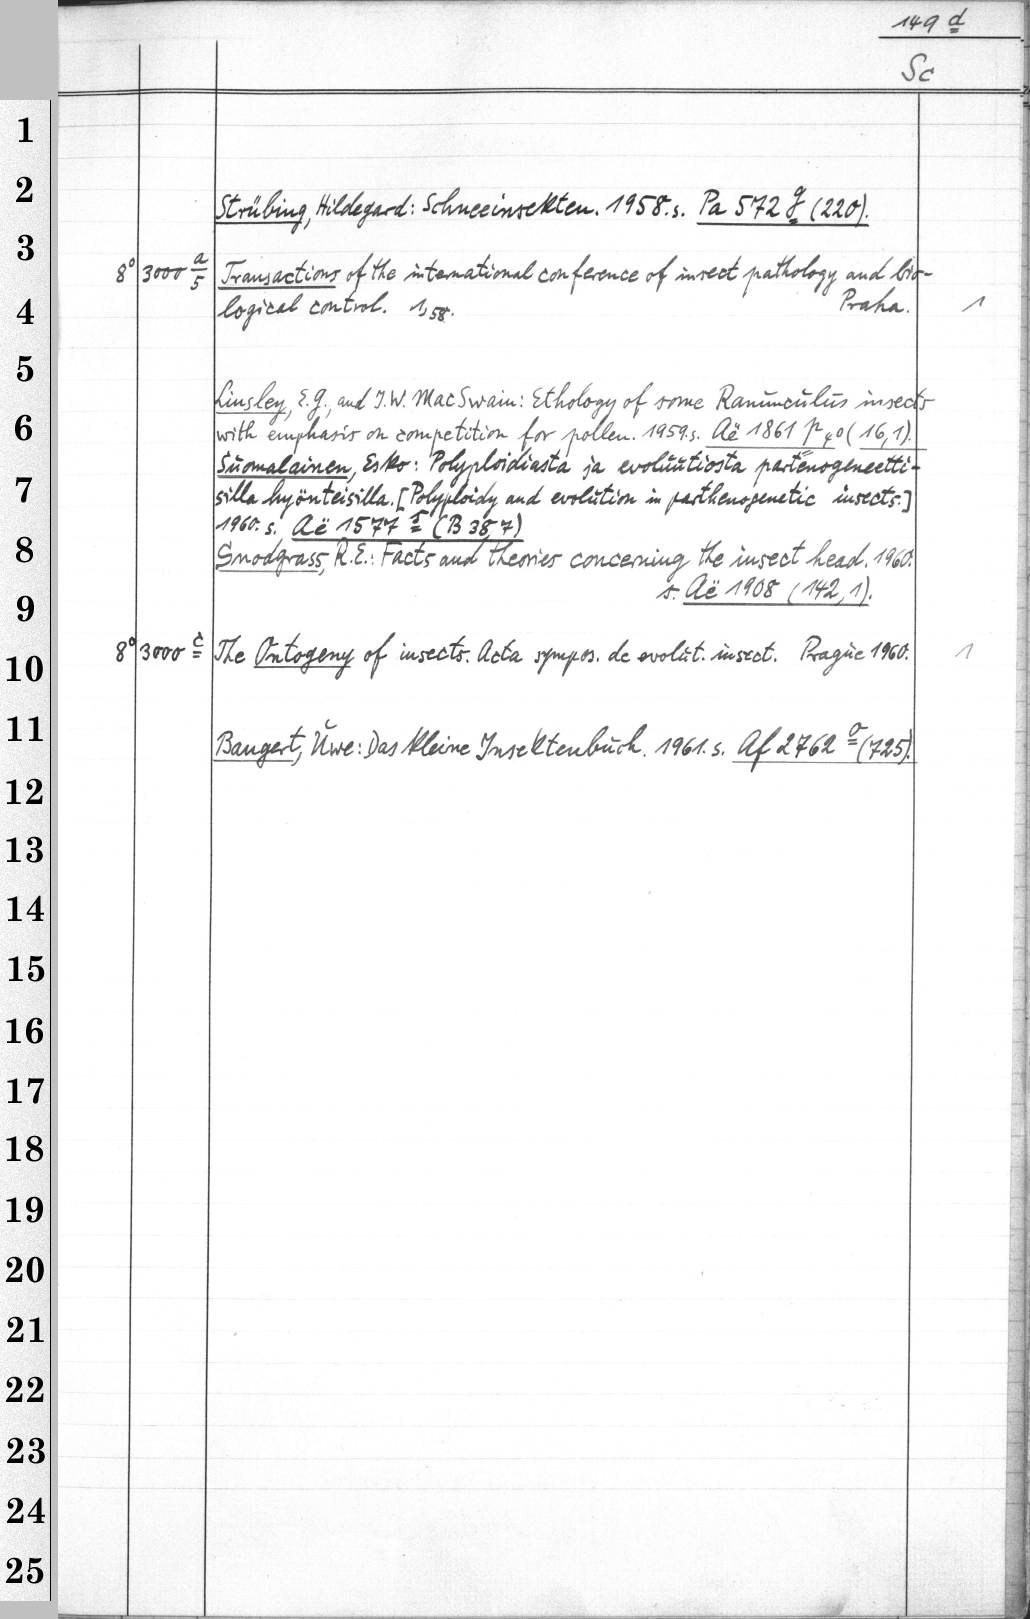 149 d
Sc
1
2
Strübing, Hildegard: Schneeinsekten. 1958. s. Pa 572 g (220).
3
8° 3000 a/5 Transactions of the international conference of insect pathology and bio-
4 logical control. 1,58. Praha. 1
5
Linsley, E.G., and J.W. MacSwain: Ethology of some Ranunculus insects
6 with emphasis on competition for pollen. 1959. s. Aë 1861 p 40 (16,1).
Suomalainen, Esko: Polyploidiasta ja evoluutiosta partenogeneetti-
7 silla hyönteisilla. [Polyploidy and evolution in parthenogenetic insects.]
1960. s. Aë 1577 r (B 38,7)
8 Snodgrass, R.E.: Facts and theories concerning the insect head. 1960.
s. Aë 1908 (142,1).
9
8° 3000 c The Ontogeny of insects. Acta sympos. de evolut. insect. Prague 1960. 1
10
11
Bangert, Uwe: Das kleine Insektenbuch. 1961. s. Af 2762 σ (725).
12
13
14
15
16
17
18
19
20
21
22
23
24
25